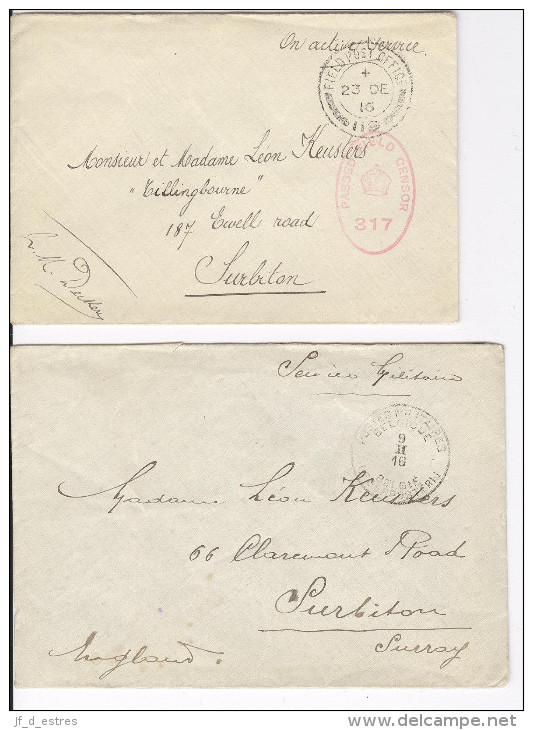 On active Service.
FIELD POST OFFICE
23 DE
16
PASSED FIELD CENSOR
317
Monsieur et Madame Léon Keusters
"Tillingbourne"
187 Ewell road
Surbiton
Service Militaire
POSTES MILITAIRES
BELGIQUE
9
II
16
BELGIE
Madame Léon Keusters
66 Claremont Road
Surbiton
Surray
England.
jf_d_estres
delcampe.net